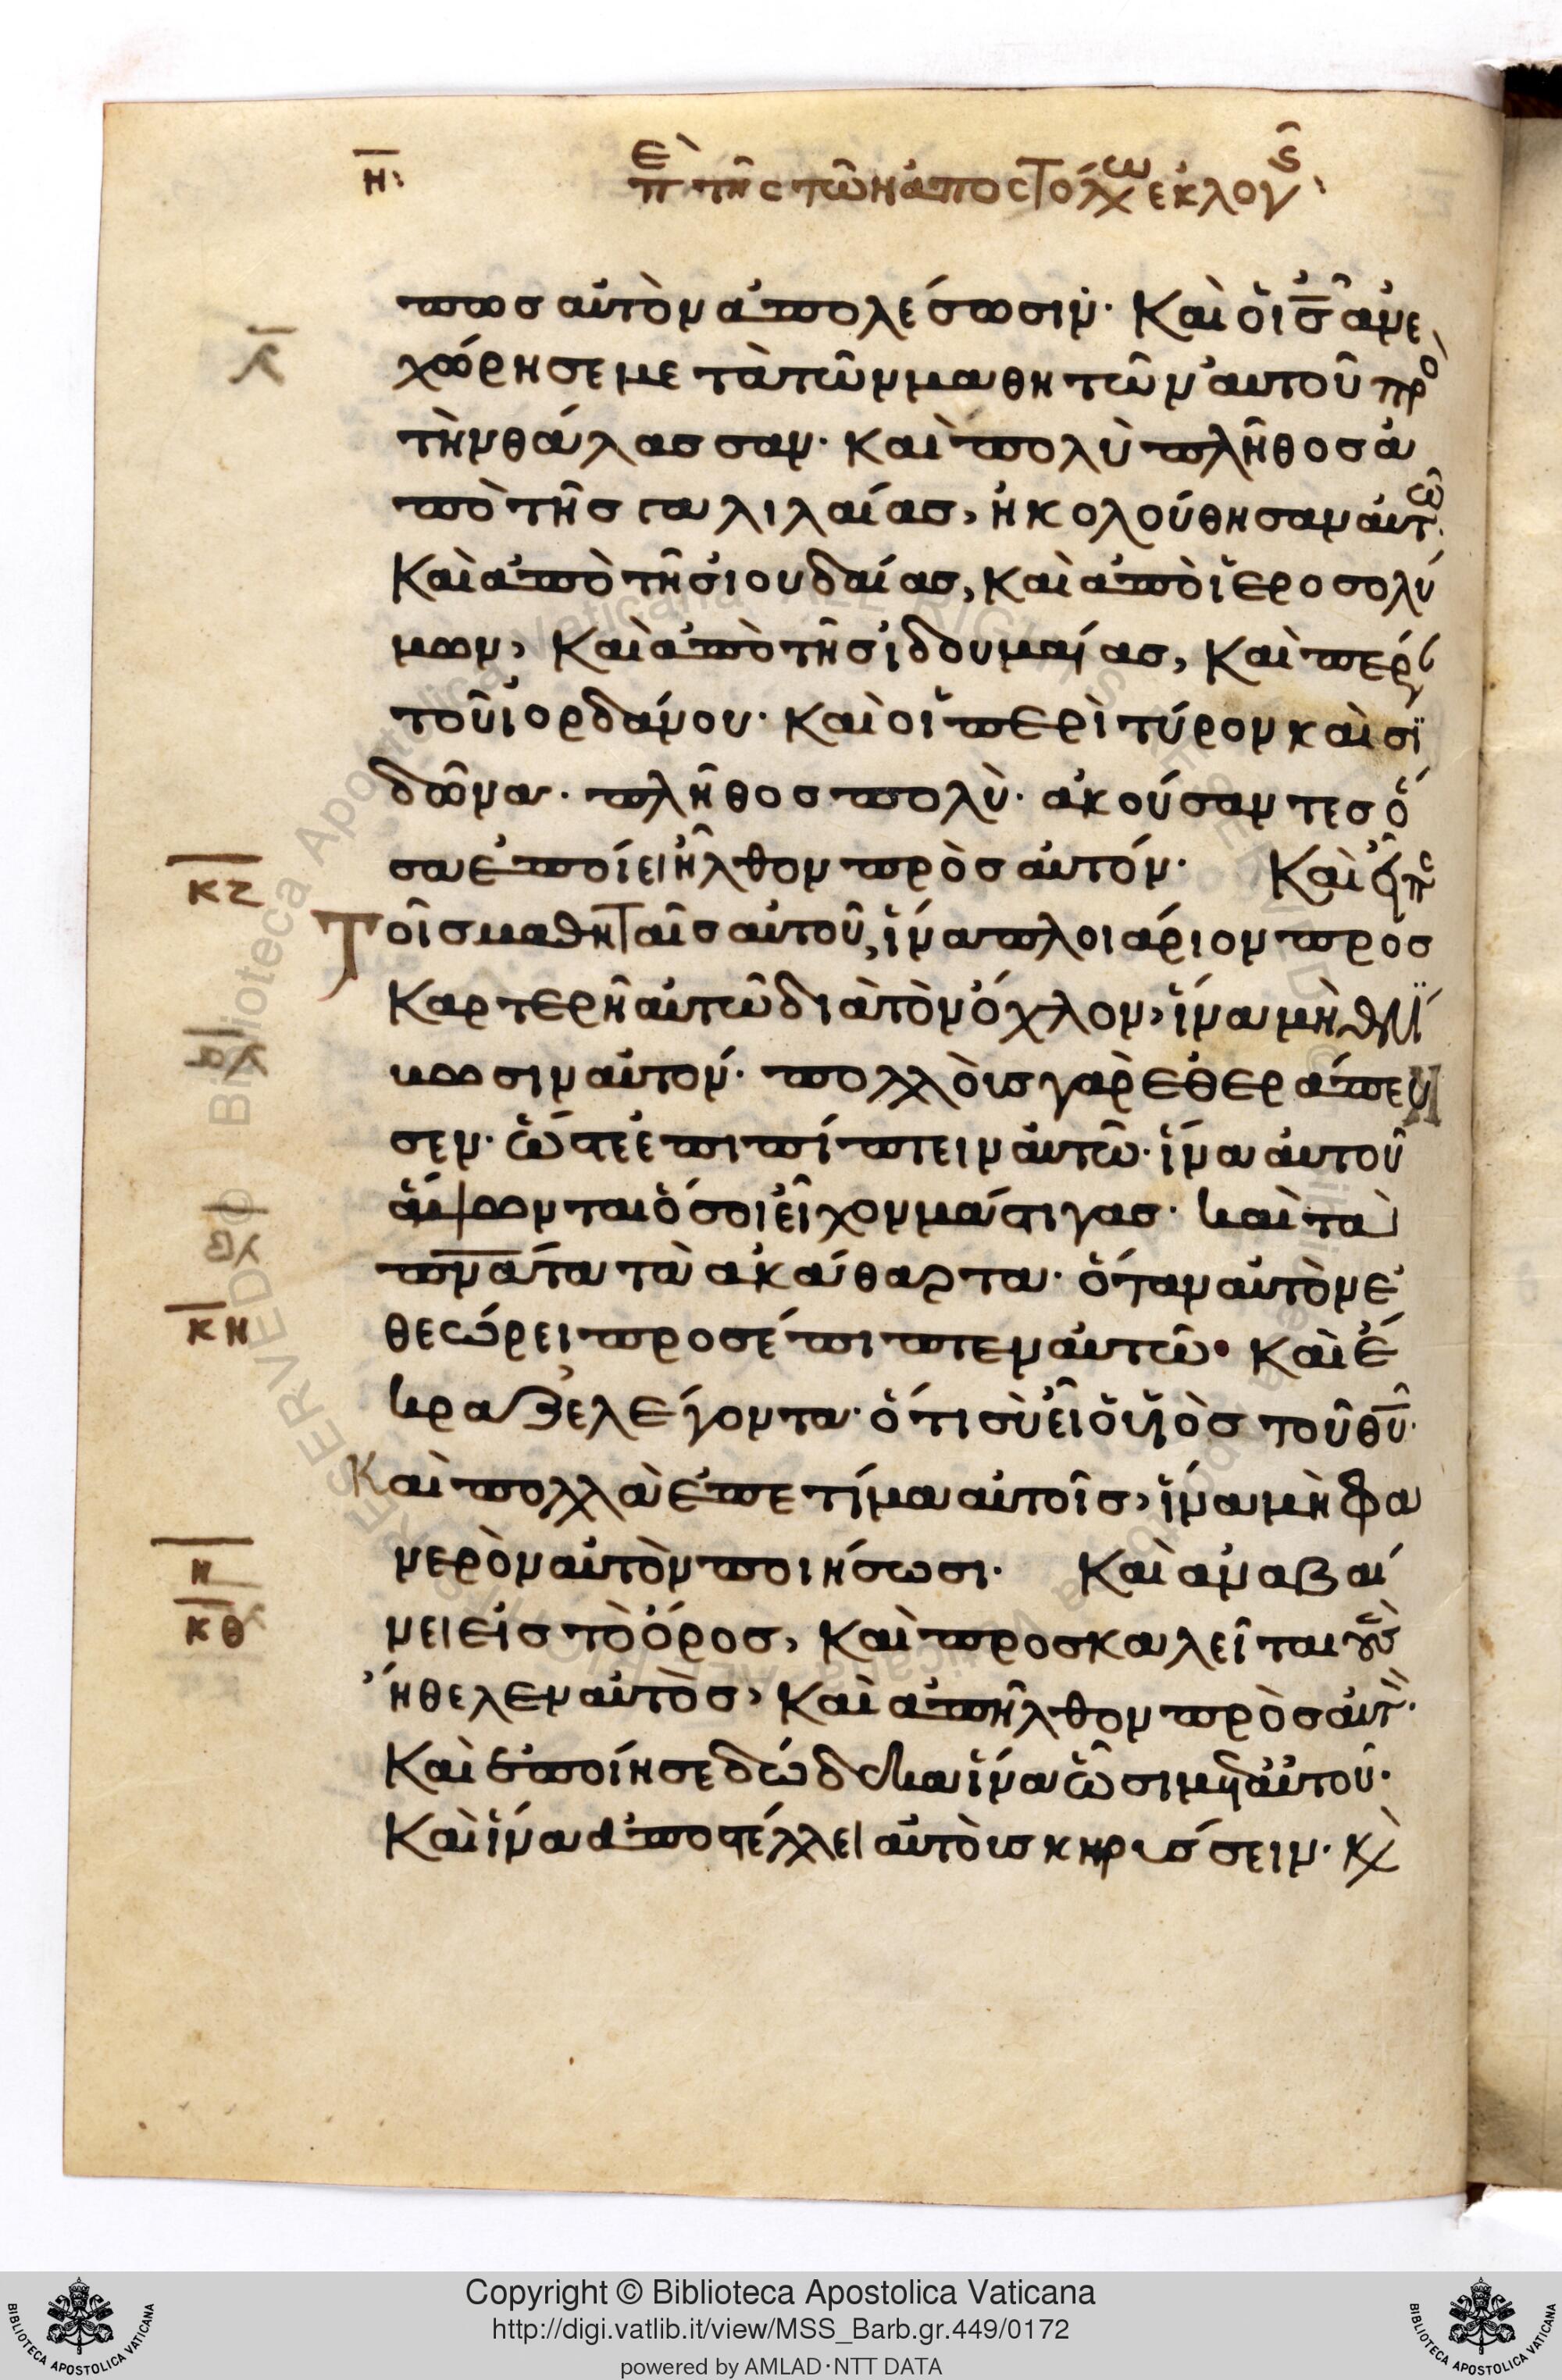 η:
πε τῆς τῶν ἀποστόλων ἐκλογῆς
πως αὐτὸν ἀπολέσωσιν· Καὶ ὁ ις ἀνε
χώρησε μετὰ τῶν μαθητῶν αὐτοῦ πρὸ
τὴν θάλασσαν· καὶ πολὺ πλῆθος ἀ
πὸ τῆς γαλιλαίας, ἠκολούθησαν αὐτῶ.
Καὶ ἀπὸ τῆς ἰουδαίας, καὶ ἀπὸ ἱεροσολύ
μων, Καὶ ἀπὸ τῆς ἰδουμαίας, καὶ πέρ
τοῦ ἰορδάνου· καὶ οἱ περὶ τύρον καὶ σι
δῶνα· πλῆθος πολὺ· ἀκούσαντες ὅ
κζ
σα ἐποίει ἦλθον πρὸς αὐτόν· Καὶ επε
Τοῖς μαθηταῖς αὐτοῦ, ἵνα πλοιάριον προσ
Καρτερῆ αὐτῶ διὰ τὸν ὄχλον, ἵνα μὴ θλί
λα
βωσιν αὐτον· πολλοὺς γὰρ ἐθεράπευ
σεν· ὥστε ἐπιπίπτειν αὐτῶ· ἵνα αὐτοῦ
ἅψωνται ὅσοι εἶχον μάστιγας· καὶ τα
λβ
πνατα τὰ ἀκάθαρτα· ὅταν αὐτὸν ἐ
κη
θεώρει προσέπιπτεν αὐτῶ· καὶ ἔ
κραζε λέγοντα· ὅτι σὺ εἶ ὁ υἱὸς τοῦ θυ·
Καὶ πολλὰ ἐπετίμα αὐτοῖς, ἵνα μὴ φα
η
νερὸν αὐτὸν ποιήσωσι· Καὶ ἀναβαί
κθ
νει εἰς τὸ ὄρος, καὶ προσκαλεῖται οὓς
ἤθελεν αὐτὸς, καὶ ἀπῆλθον πρὸς αὐτὸν·
Καὶ ἐποίησε δώδεκα ἵνα ὦσι μετ αὐτοῦ·
Καὶ ἵνα ἀποστέλλει αὐτοὺς κηρύσσειν· κ
Copyright © Biblioteca Apostolica Vaticana
http://digi.vatlib.it/view/MSS_Barb.gr.449/0172
powered by AMLAD·NTT DATA
BIBLIOTECA APOSTOLICA VATICANA
BIBLIOTECA APOSTOLICA VATICANA